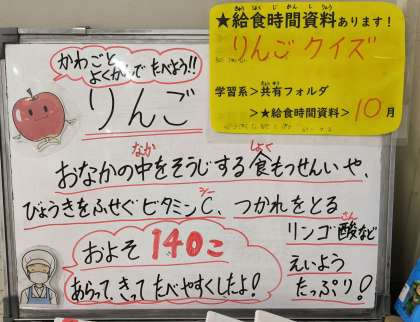 かわごと
よくかんで たべよう!!
りんご
きゅうしょく じ かん し りょう
★給食時間資料あります!
りんごクイズ
学習系>共有フォルダ
>★給食時間資料>10月
なか しょく
おなかの中をそうじする食もつせんいや、
シー
びょうきをふせぐビタミンC、つかれをとる
さん
リンゴ酸など
およそ140こ
あらって、きって たべやすくしたよ!
えいよう
たっぷり!